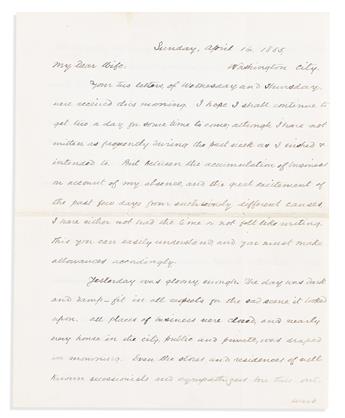 Sunday, April 16, 1865
My Dear Wife. Washington City.
Your two letters, of Wednesday and Thursday,
were received this morning. I hope I shall continue to
get two a day for some time to come, although I have not
written as frequently during the past week as I wished &
intended to. But between the accumulation of business
on account of my absence, and the great excitement of
the past few days from such widely different causes
I have either not had the time or not felt like writing.
This you can easily understand and you must make
allowances accordingly.
Yesterday was gloomy enough. The day was dark
and damp – fit in all respects, for the sad scene it looked
upon. All places of business were closed, and nearly
every house in the city, public and private, was draped
in mourning. Even the stores and residences of well
known secessionists and sympathizers